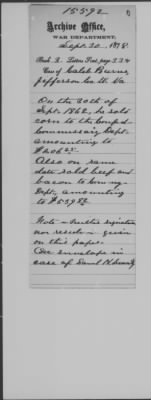 15592
Archive Office,
WAR DEPARTMENT,
Sept. 20 1878.
Book 3. Letters Sent, page 334
Case of Caleb Burns,
Jefferson Co. W. Va
On the 20th of
Sept. 1862, he sold
corn to the Confed.
Commissary Dept.
amounting to
Also on same
date sold beef and
bacon to Comsy.
Dept. amounting
to
Note - neither signature
nor residence given
on this paper.
See envelope in
case of